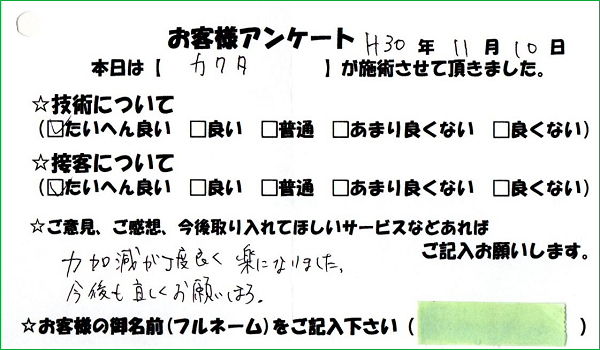 お客様アンケート H30 年 11 月 10 日
本日は【 カクタ 】が施術させて頂きました。
☆技術について
(☑たいへん良い □良い □普通 □あまり良くない □良くない)
☆接客について
(☑たいへん良い □良い □普通 □あまり良くない □良くない)
☆ご意見、ご感想、今後取り入れてほしいサービスなどあれば
ご記入お願いします。
力加減が丁度良く 楽になりました。
今後も宜しくお願いします。
☆お客様の御名前(フルネーム)をご記入下さい(